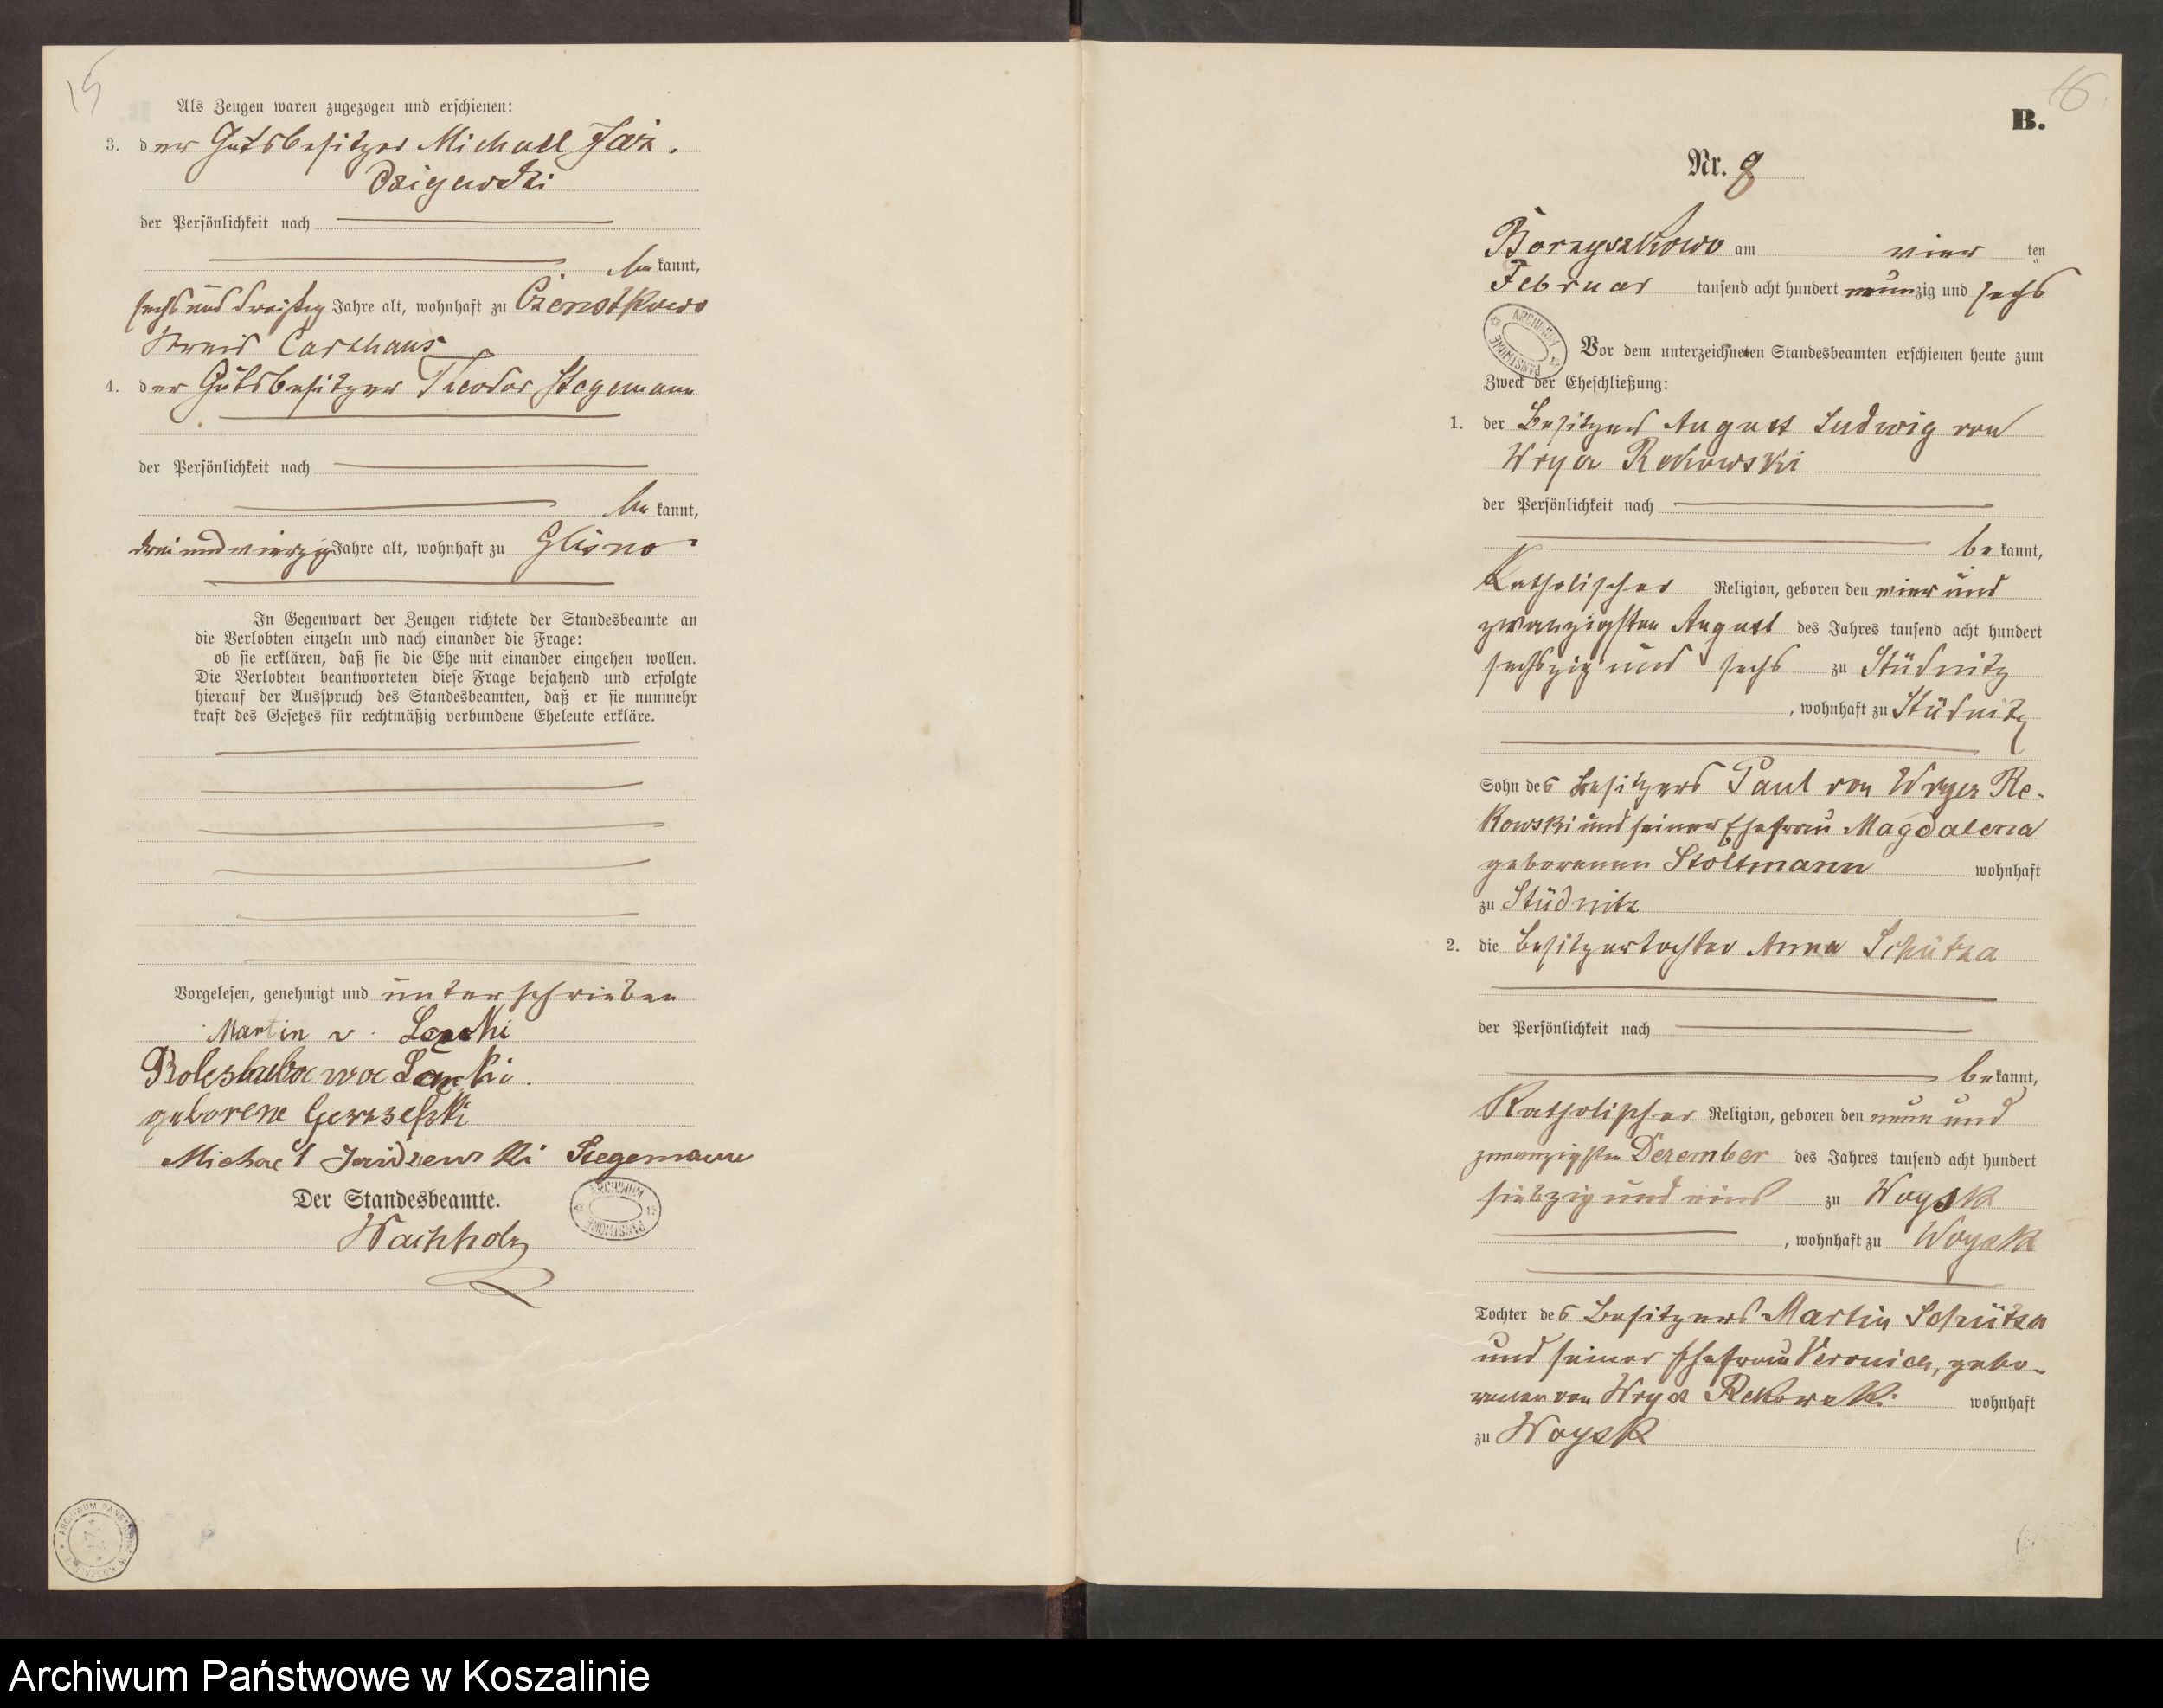 15
Als Zeugen waren zugezogen und erschienen:
3. der Gutsbesitzer Michael
der Persönlichkeit nach
bekannt,
sechs und dreißig Jahre alt, wohnhaft zu Czenstkowo
Kreis Carthaus
4. der Gutsbesitzer Theodor Stegemann
der Persönlichkeit nach
bekannt,
drei und vierzig Jahre alt, wohnhaft zu Glisno
In Gegenwart der Zeugen richtete der Standesbeamte an
die Verlobten einzeln und nach einander die Frage:
ob sie erklären, daß sie die Ehe mit einander eingehen wollen.
Die Verlobten beantworteten diese Frage bejahend und erfolgte
hierauf der Ausspruch des Standesbeamten, daß er sie nunmehr
kraft des Gesetzes für rechtmäßig verbundene Eheleute erkläre.
Vorgelesen, genehmigt und unterschrieben
Martin v.
geborene
Michael Stegemann
Der Standesbeamte.
Wachholz
ARCHIWUM PAŃSTWOWE
16
B.
Nr. 8
Borzyszkowo am vier ten
Februar tausend acht hundert neunzig und sechs
ARCHIWUM PAŃSTWOWE
Vor dem unterzeichneten Standesbeamten erschienen heute zum
Zweck der Eheschließung:
1. der Besitzer August Ludwig von
Wrycz Rekowski
der Persönlichkeit nach
bekannt,
Katholischer Religion, geboren den vier und
zwanzigsten August des Jahres tausend acht hundert
sechszig und sechs zu Stüdnitz
, wohnhaft zu Stüdnitz
Sohn des Besitzers Paul von Wrycz Re-
kowski und seiner Ehefrau Magdalena
geborenen Stoltmann wohnhaft
zu Stüdnitz
2. die Besitzertochter Anna Schütza
der Persönlichkeit nach
bekannt,
Katholischer Religion, geboren den neun und
zwanzigsten Dezember des Jahres tausend acht hundert
siebzig und eins zu Woysk
, wohnhaft zu Woysk
Tochter des Besitzers Martin Schütza
und seiner Ehefrau Veronica, gebo-
renen von Wrycz Rekowski wohnhaft
zu Woysk
Archiwum Państwowe w Koszalinie